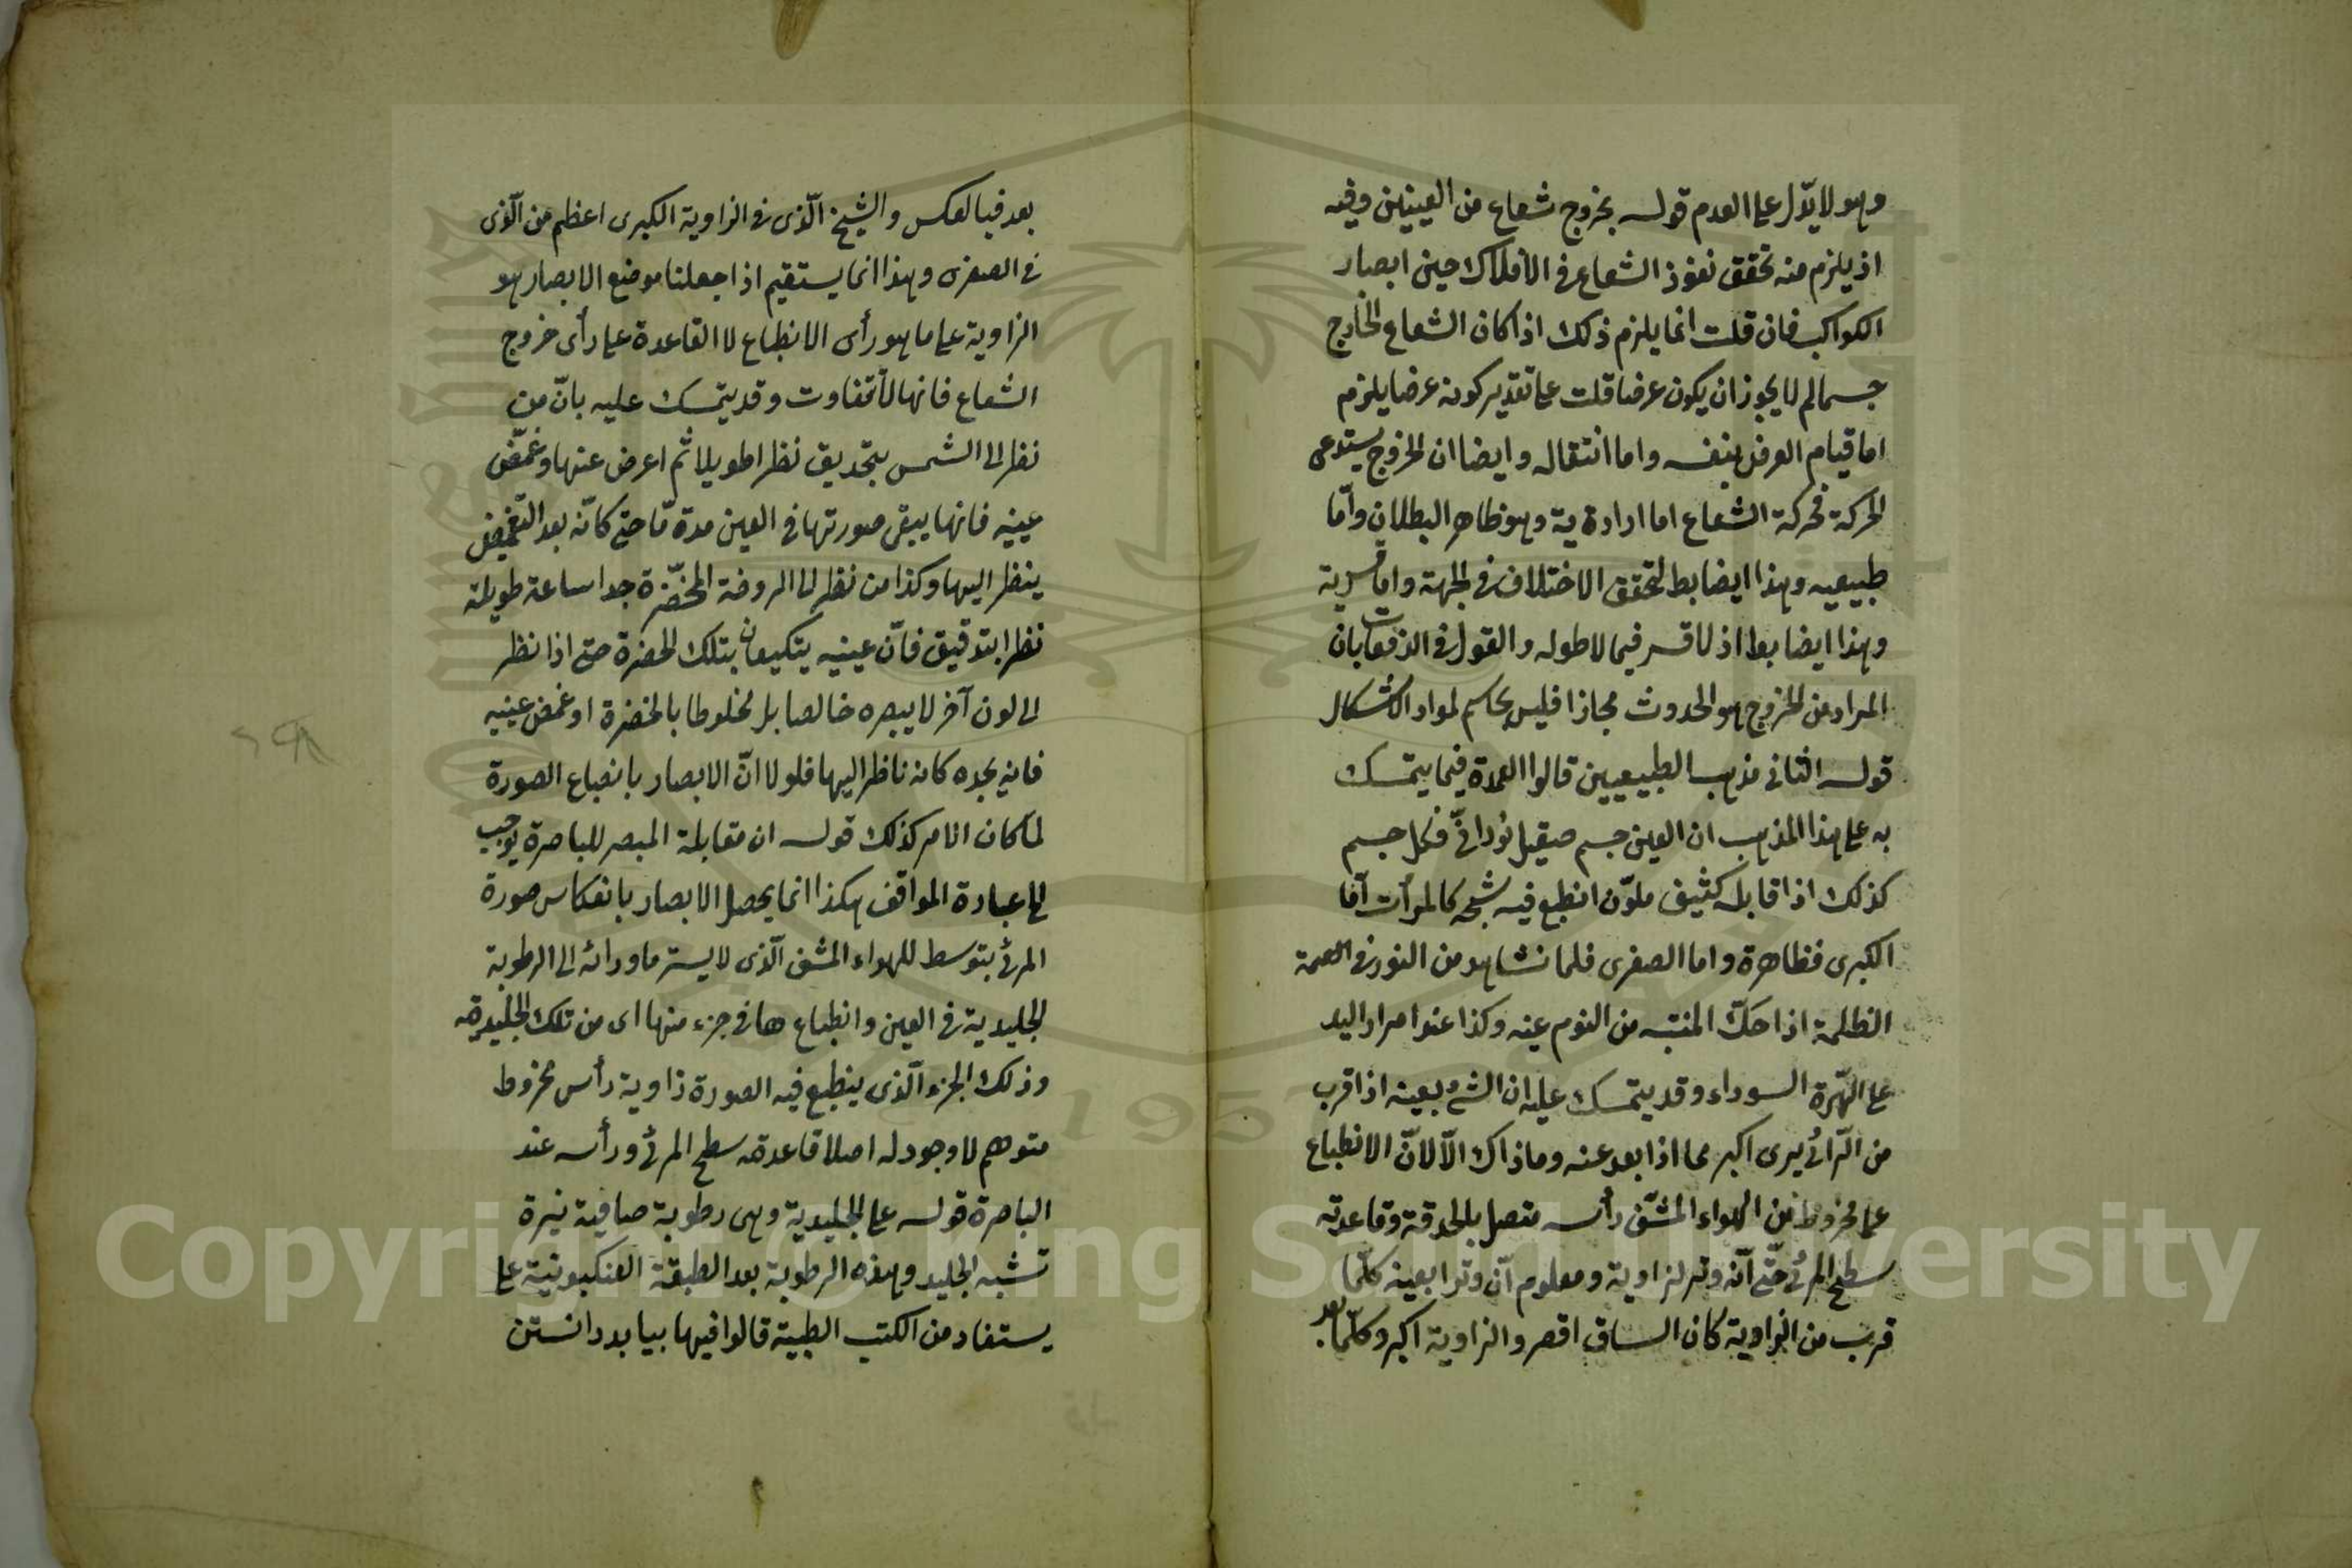 وهو لا يدّل على العدم قوله بخروج شعاع من العينين وفيه
اذ يلزم منه تحقق نفوذ الشعاع فى الأفلاك حين ابصار
الكواكب فان قلت انما يلزم ذلك اذا كان الشعاع الخارج
جسما لم لا يجوز ان يكون عرضا قلت على تقدير كونه عرضا يلزم
اما قيام العرض بنفسه واما انتقاله وايضا ان الخروج يستدعى
الحركة فحركة الشعاع اما ارادة ية وهو ظاهر البطلان وامّا
طبيعيه وهذا ايضا بط لتحقق الاختلاف فى الجهة واما قسرية
وهذا ايضا بط اذ لا قسر فيما لا طوله والقول فى الدفعات بان
المراد من الخروج هو الحدوث مجازا فليس بحاسم لمواد الاشكال
قوله الثانى مذهب الطبيعيين قالوا العمدة فيما يتمسك
به على هذا المذهب ان العين جسم صيقيل نورانىّ فكل جسم
كذلك اذا قابله كثيف ملوّن انطبع فيه شبحه كالمرأت اما
الكبرى فظاهرة واما الصغرى فلما نشاهد من النور فى
الظلمة اذا حكّ المنتبه من النوم عينه وكذا عند امرار اليد
على الهّرة السوداء وقد يتمسك عليه ان الشئ بعينه اذا قرب
من الرّائى يرى اكبر مما اذا بعد عنه وما ذاك الّا لانّ الانطباع
على مخروط من الهواء المشّف رأسه متصل بالحدقة وقاعدته
سطح المرئى حتّى انّه وتر لزاوية ومعلوم انّ وترا بعينه كلّما
قرب من الزاوية كان الساق اقصر والزاوية اكبر وكلّما بعد
بعد فبالعكس والشبح الّذى فى الزاوية الكبرى اعظم من الّذى
فى الصغرى وهذا انما يستقيم اذا جعلنا موضع الابصار هو
الزاوية على ما هو رأى الانطباع لا القاعدة على رأى خروج
الشعاع فانها لا تتفاوت وقد يتمسك عليه بانّ من
نظر الى الشمس بتحديق نظرا طويلا ثم اعرض عنها وغمّض
عينيه فانها يبقى صورتها فى العين مدة مّا حتى كانّه بعد التّغميض
ينظر اليها وكذا من نظر الى الروضة المخضّرة جدا ساعة طويلة
نظرا بتدقيق فانّ عينيه يتكيفان بتلك الخضرة حتى اذا نظر
الى لون آخر لا يبصره خالصا بل مخلوطا بالخضرة او غمض عينيه
فانه يجده كانه ناظر اليها فلولا انّ الابصار بانطباع الصورة
لما كان الامر كذلك قوله ان مقابلة المبصر للباصرة يوجب
الخ عبارة المواقف هكذا انما يحصل الابصار بانعكاس صورة
المرئى بتوسط للهواء المشف الّذى لا يستر ماورائه الى الرطوبة
الجليدية فى العين وانطباع ها فى جزء منها اى من تلك الجليدية
وذلك الجزء الّذى ينطبع فيه الصورة زاوية رأس مخروط
متوهم لا وجود له اصلا قاعدته سطح المرئى ورأسه عند
الباصرة قوله على الجليدية وهى رطوبة صافية نيرة
تشبه الجليد وهذه الرطوبة بعد الطبقة العنكبوتية على
يستفاد من الكتب الطبية قالوا فيها بيابد دانستن
Copyright © King Saud University
1957